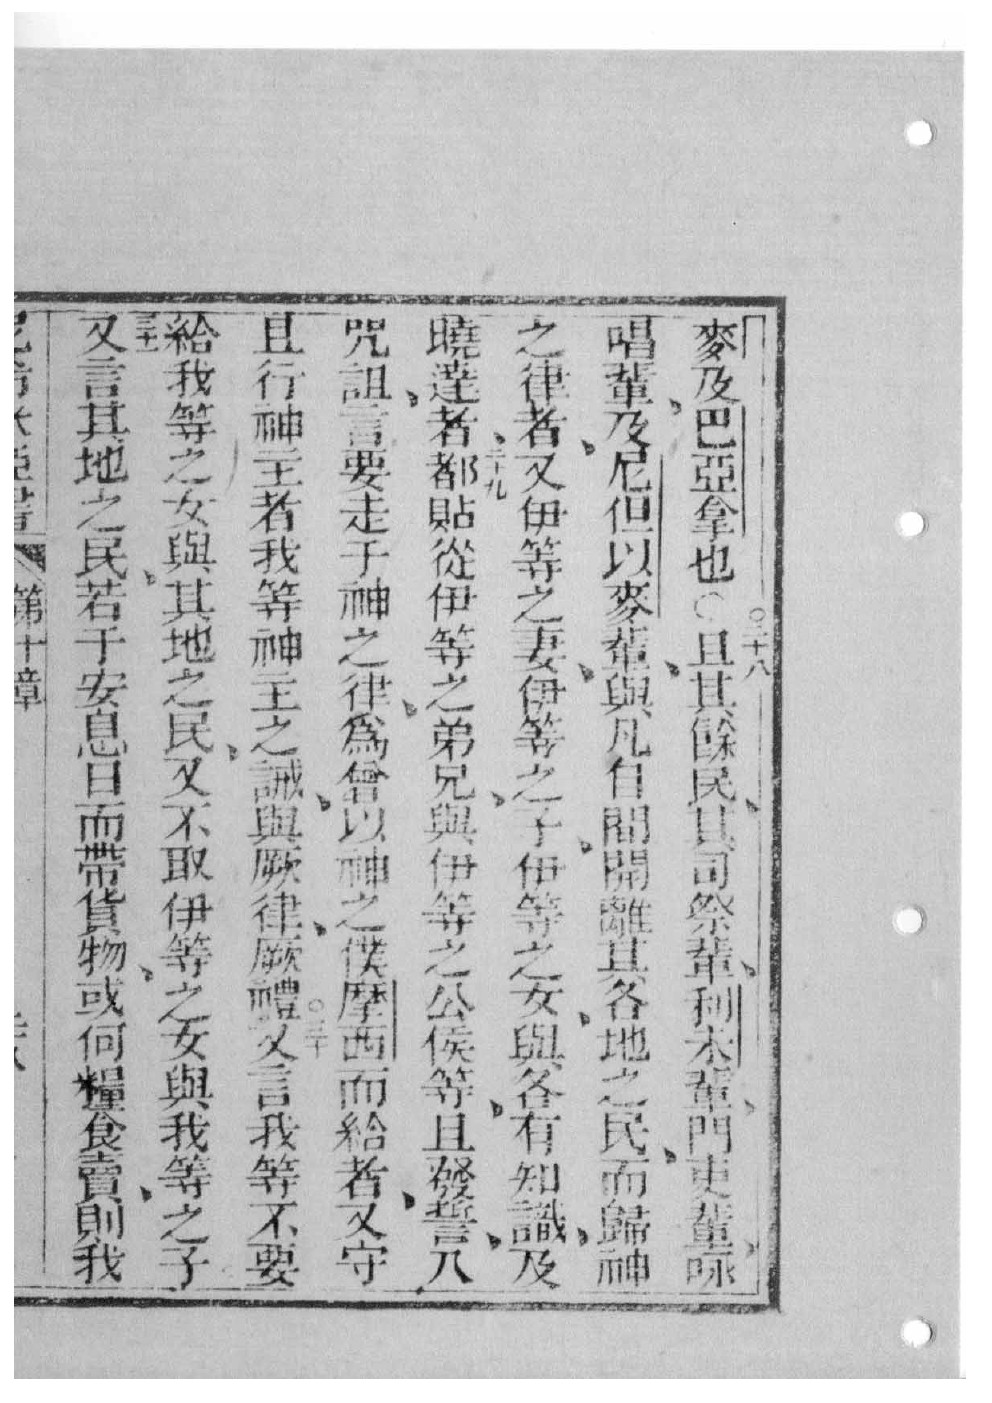 麥及巴亞拿也○二十八且其餘民其司祭輩利未輩門吏輩咏
唱輩及尼但以麥輩與凡自間開離其各地之民而歸神
之律者又伊等之妻伊等之子伊等之女與各有知識及
曉達者二十九都貼從伊等之弟兄與伊等之公侯等且發誓入
咒詛言要走于神之律爲曾以神之僕摩西而給者又守
且行神主者我等神主之誡與厥律厥禮三十又言我等不要
給我等之女與其地之民又不取伊等之女與我等之子
三十一又言其地之民若于安息日而帶貨物或何糧食賣則我
第十章